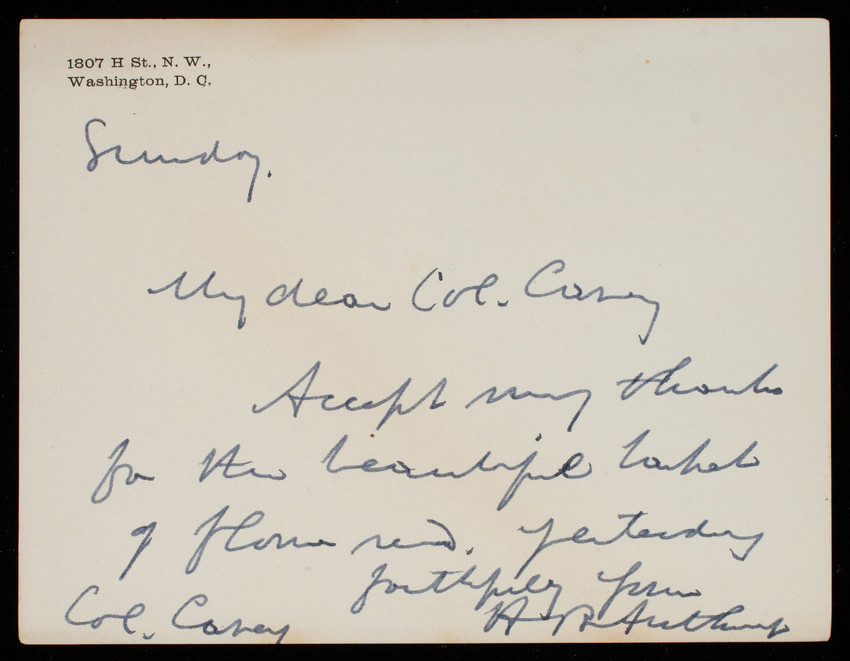 1807 H St., N. W.,
Washington, D. C.
Sunday.
My dear Col. Casey
Accept my thanks
for the beautiful basket
of flowers recd. yesterday
faithfully yours
Col. Casey H. B.